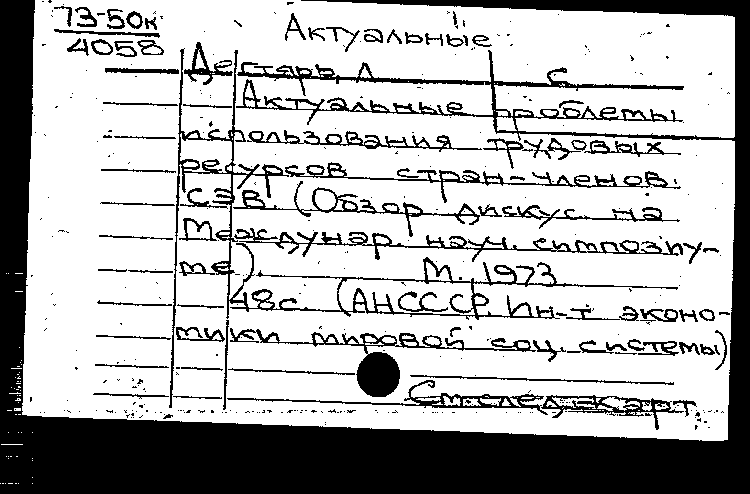 73-50к
4058
Актуальные
Дегтярь, Л. С.
Актуальные проблемы
использования трудовых
ресурсов стран-членов
СЭВ. (Обзор дискус. на
Междунар. науч. симпозиу-
ме). М., 1973.
48с. (АНСССР. Ин-т эконо-
мики мировой соц. системы)
См. след. карт.